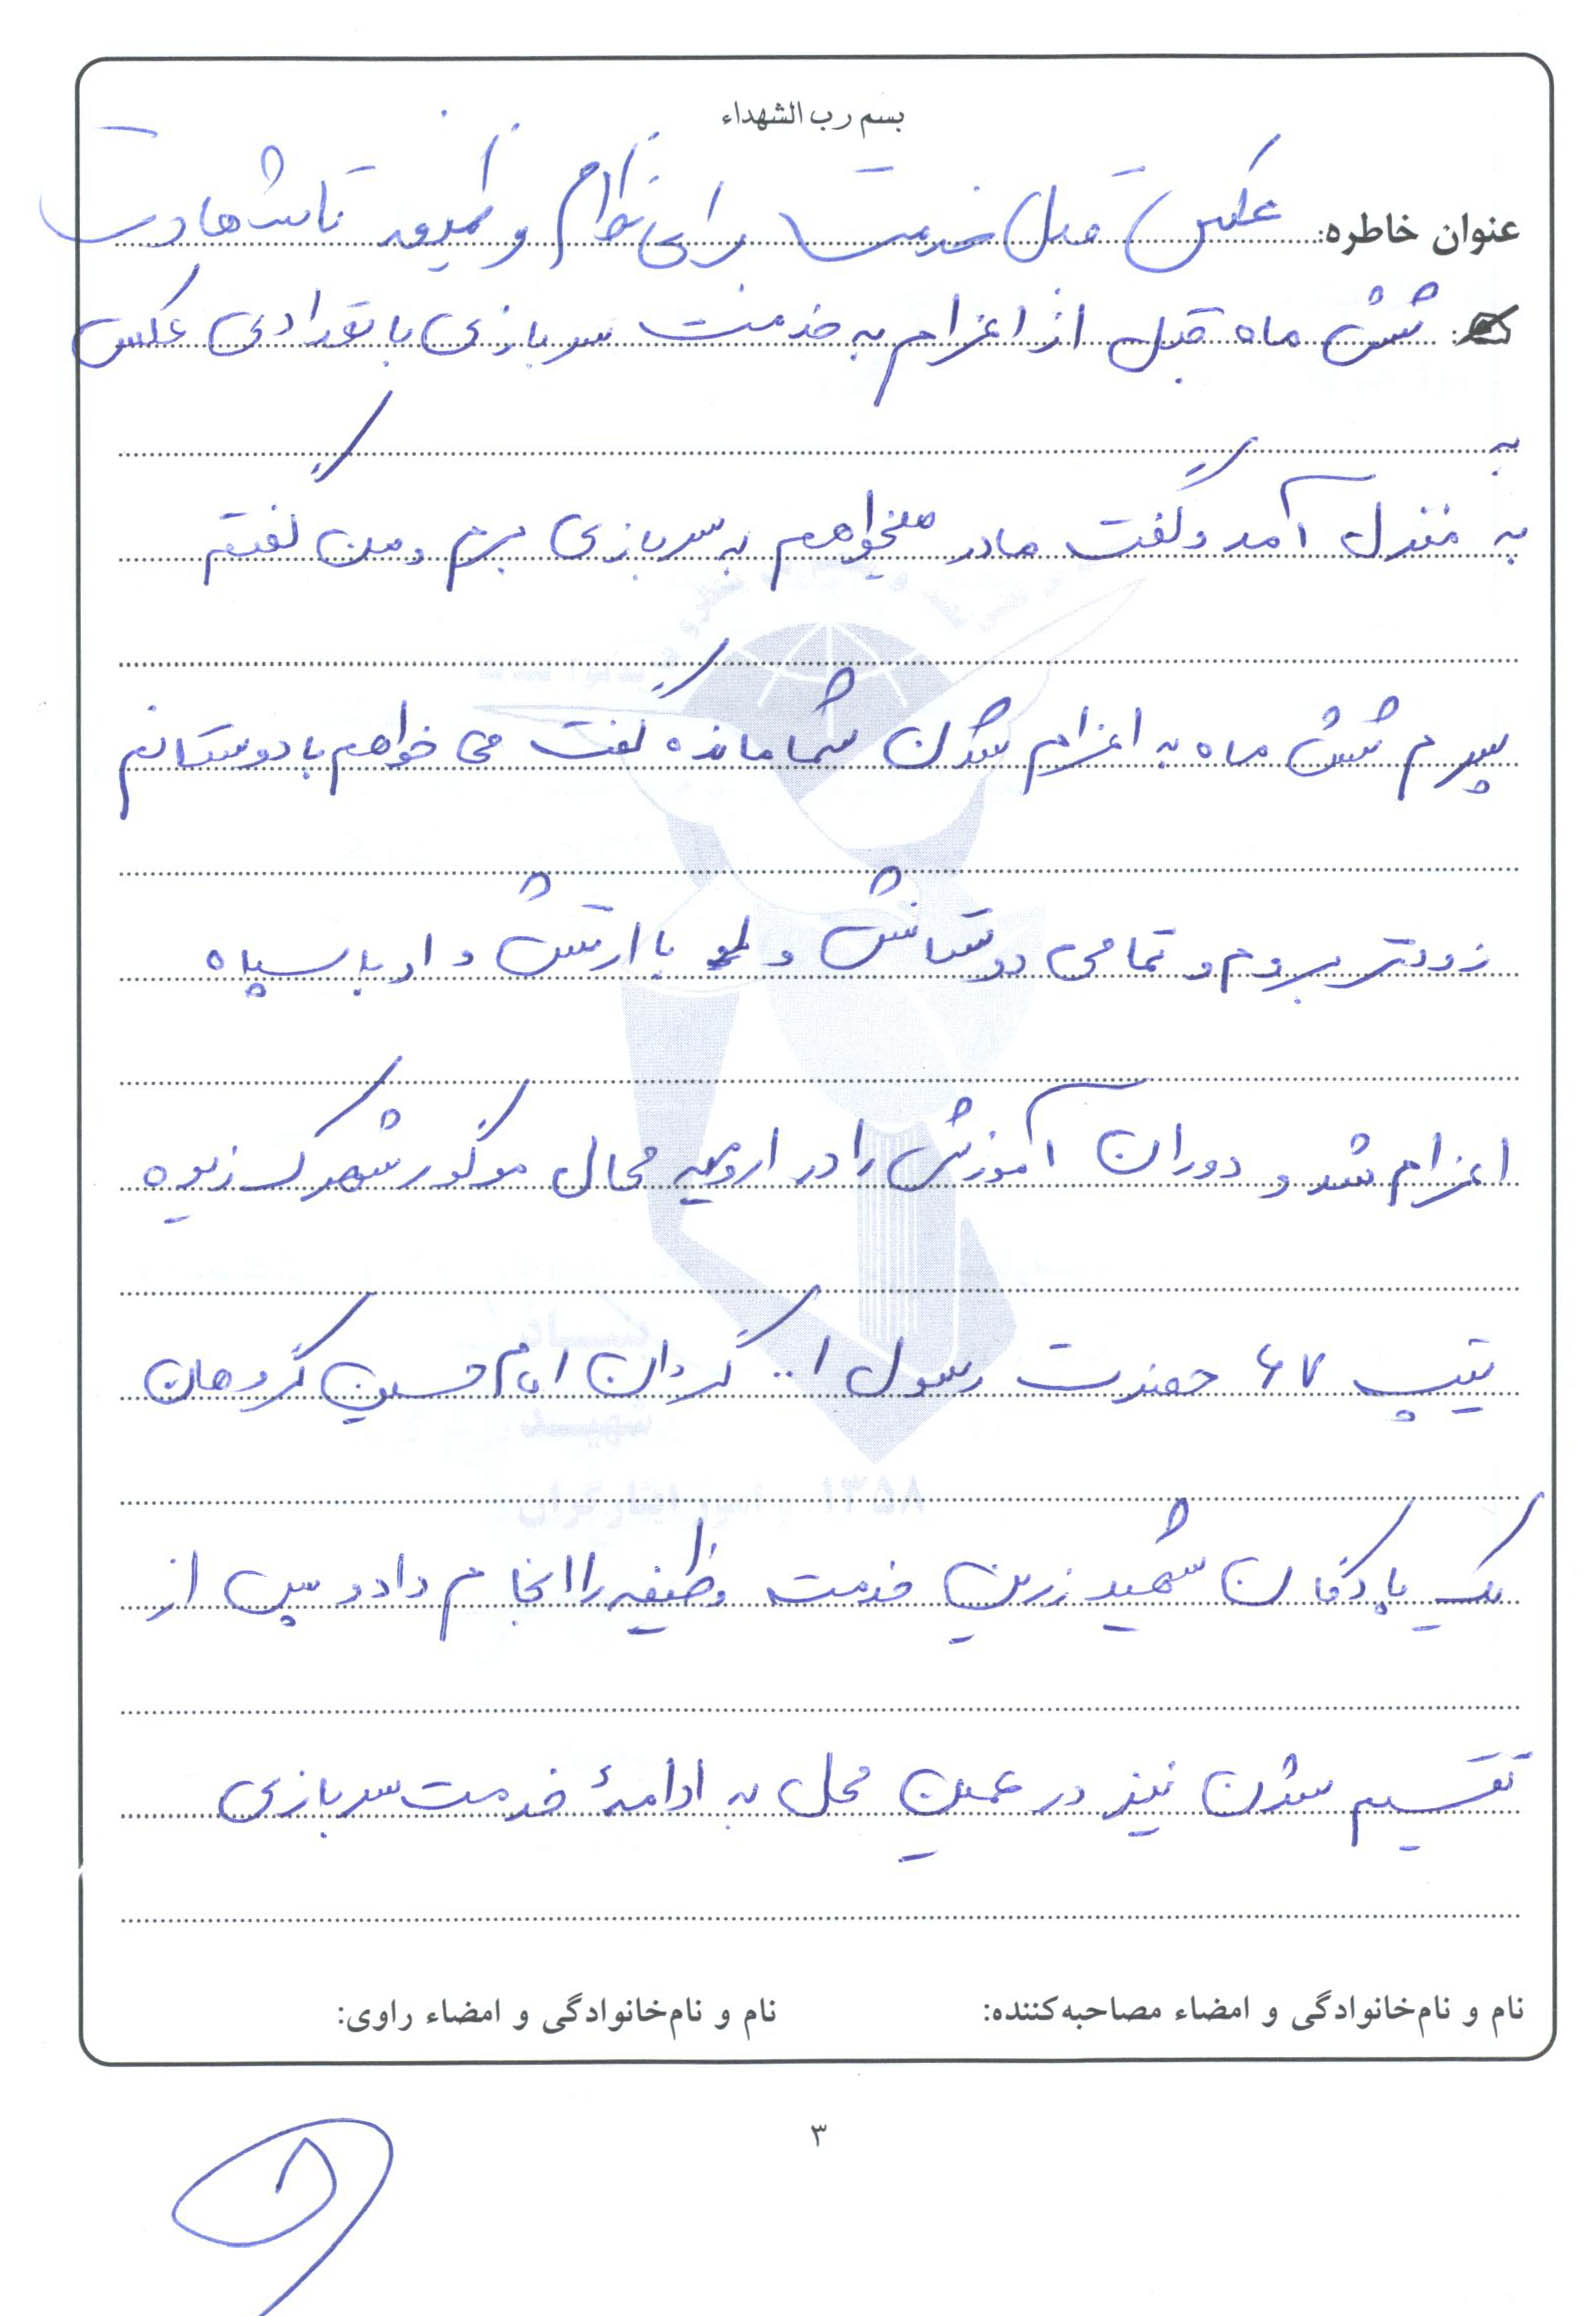 بسم رب الشهداء
عنوان خاطره: عکس قبل خدمت برای نظام وظیفه تا شهادت
شش ماه قبل از اعزام به خدمت سربازی با تعدادی عکس
به
به منزل آمد و گفت مادر میخواهم به سربازی برم و من گفتم
پسرم شش ماه به اعزام شدن شما مانده گفت می خواهم با دوستانم
زودتر بروم و تمامی دوستانش و با ارتش و او با سپاه
اعزام شد و دوران آموزش را در ارومیه محال موگور شهرک زیوه
تیپ ۶۷ حضرت رسول ا.. گردان امام حسین گروهان
یک پادگان شهید زرین خدمت وظیفه را انجام داد و پس از
تقسیم شدن نیز در همین محل به ادامهٔ خدمت سربازی
نام و نام‌خانوادگی و امضاء مصاحبه‌کننده:
نام و نام‌خانوادگی و امضاء راوی:
۳
بنیاد
شهید
و امور ایثارگران
۱۳۵۸